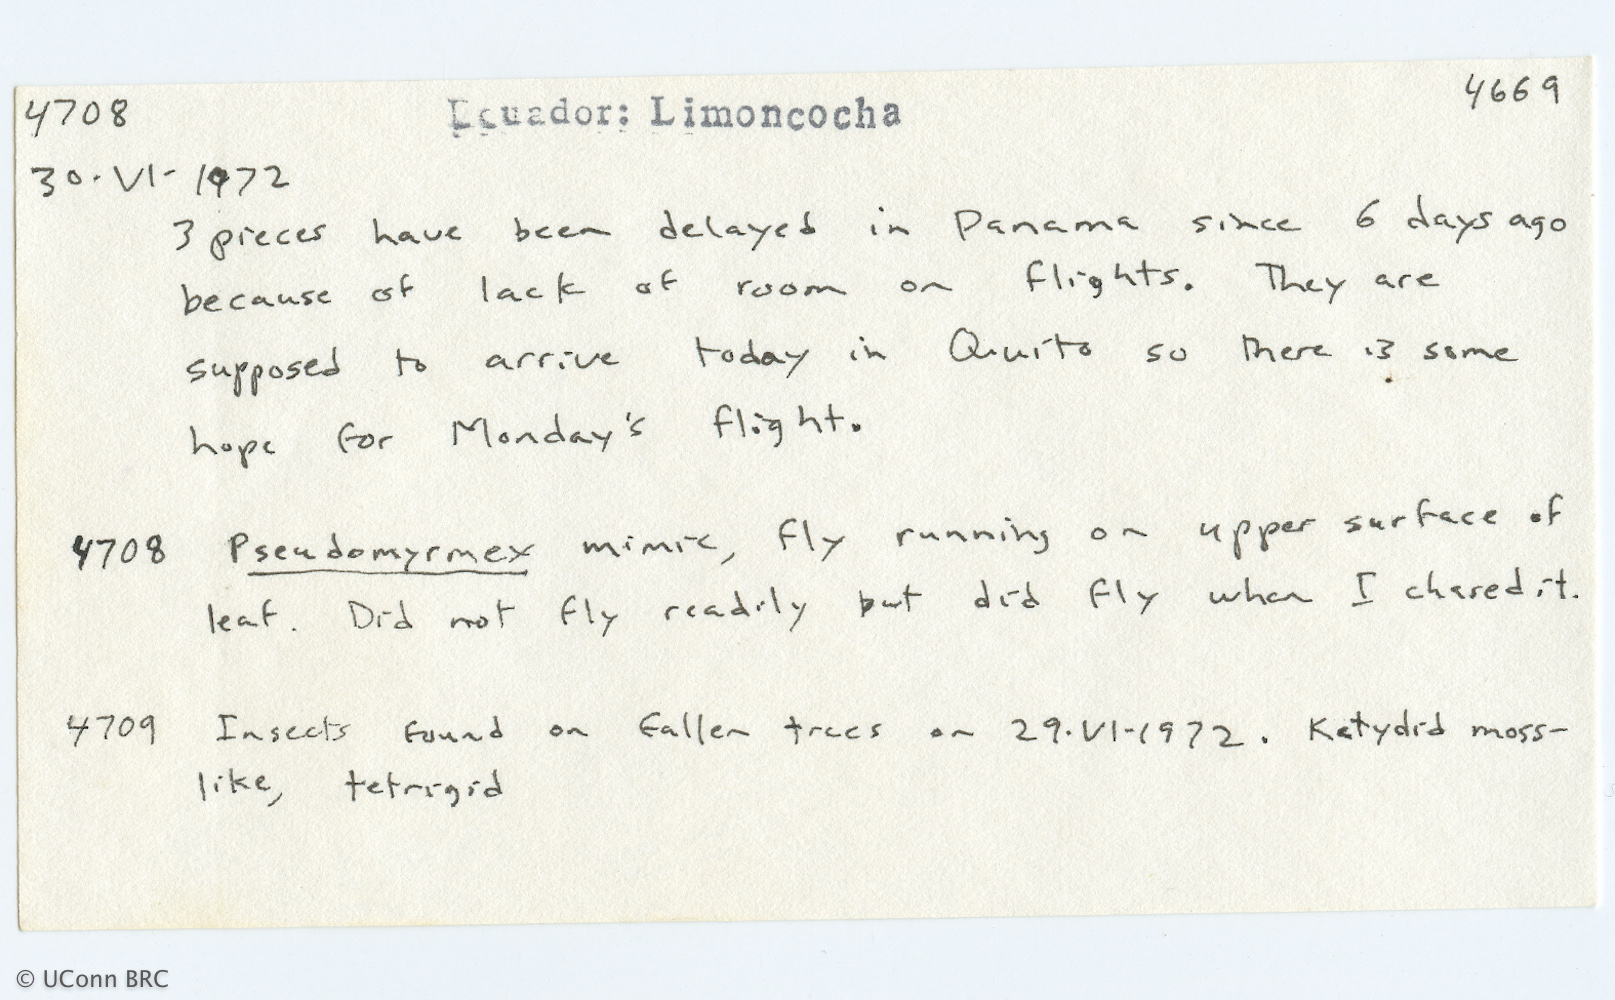 4708 Ecuador: Limoncocha 4669
30-VI-1972
3 pieces have been delayed in Panama since 6 days ago
because of lack of room on flights. They are
supposed to arrive today in Quito so there is some
hope for Monday's flight.
4708 Pseudomyrmex mimic, fly running on upper surface of
leaf. Did not fly readily but did fly when I chased it.
4709 Insects found on fallen trees on 29-VI-1972. Katydid moss-
like, tetrigid
© UConn BRC